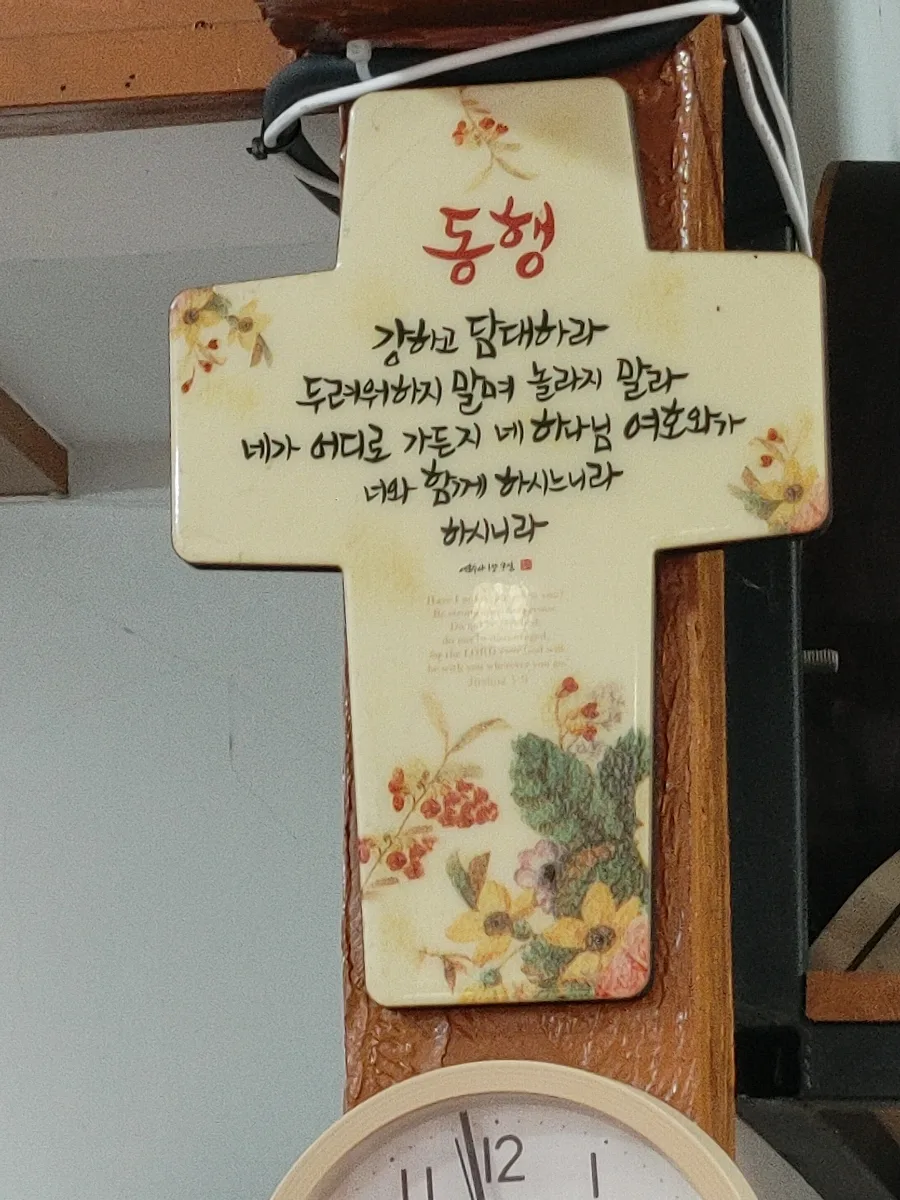 동행
강하고 담대하라
두려워하지 말며 놀라지 말라
네가 어디로 가든지 네 하나님 여호와가
너와 함께 하시느니라
하시니라
여호수아 1장 9절
do not be discouraged,
for the LORD your God will
be with you wherever you go.
Joshua 1:9
11 12 1